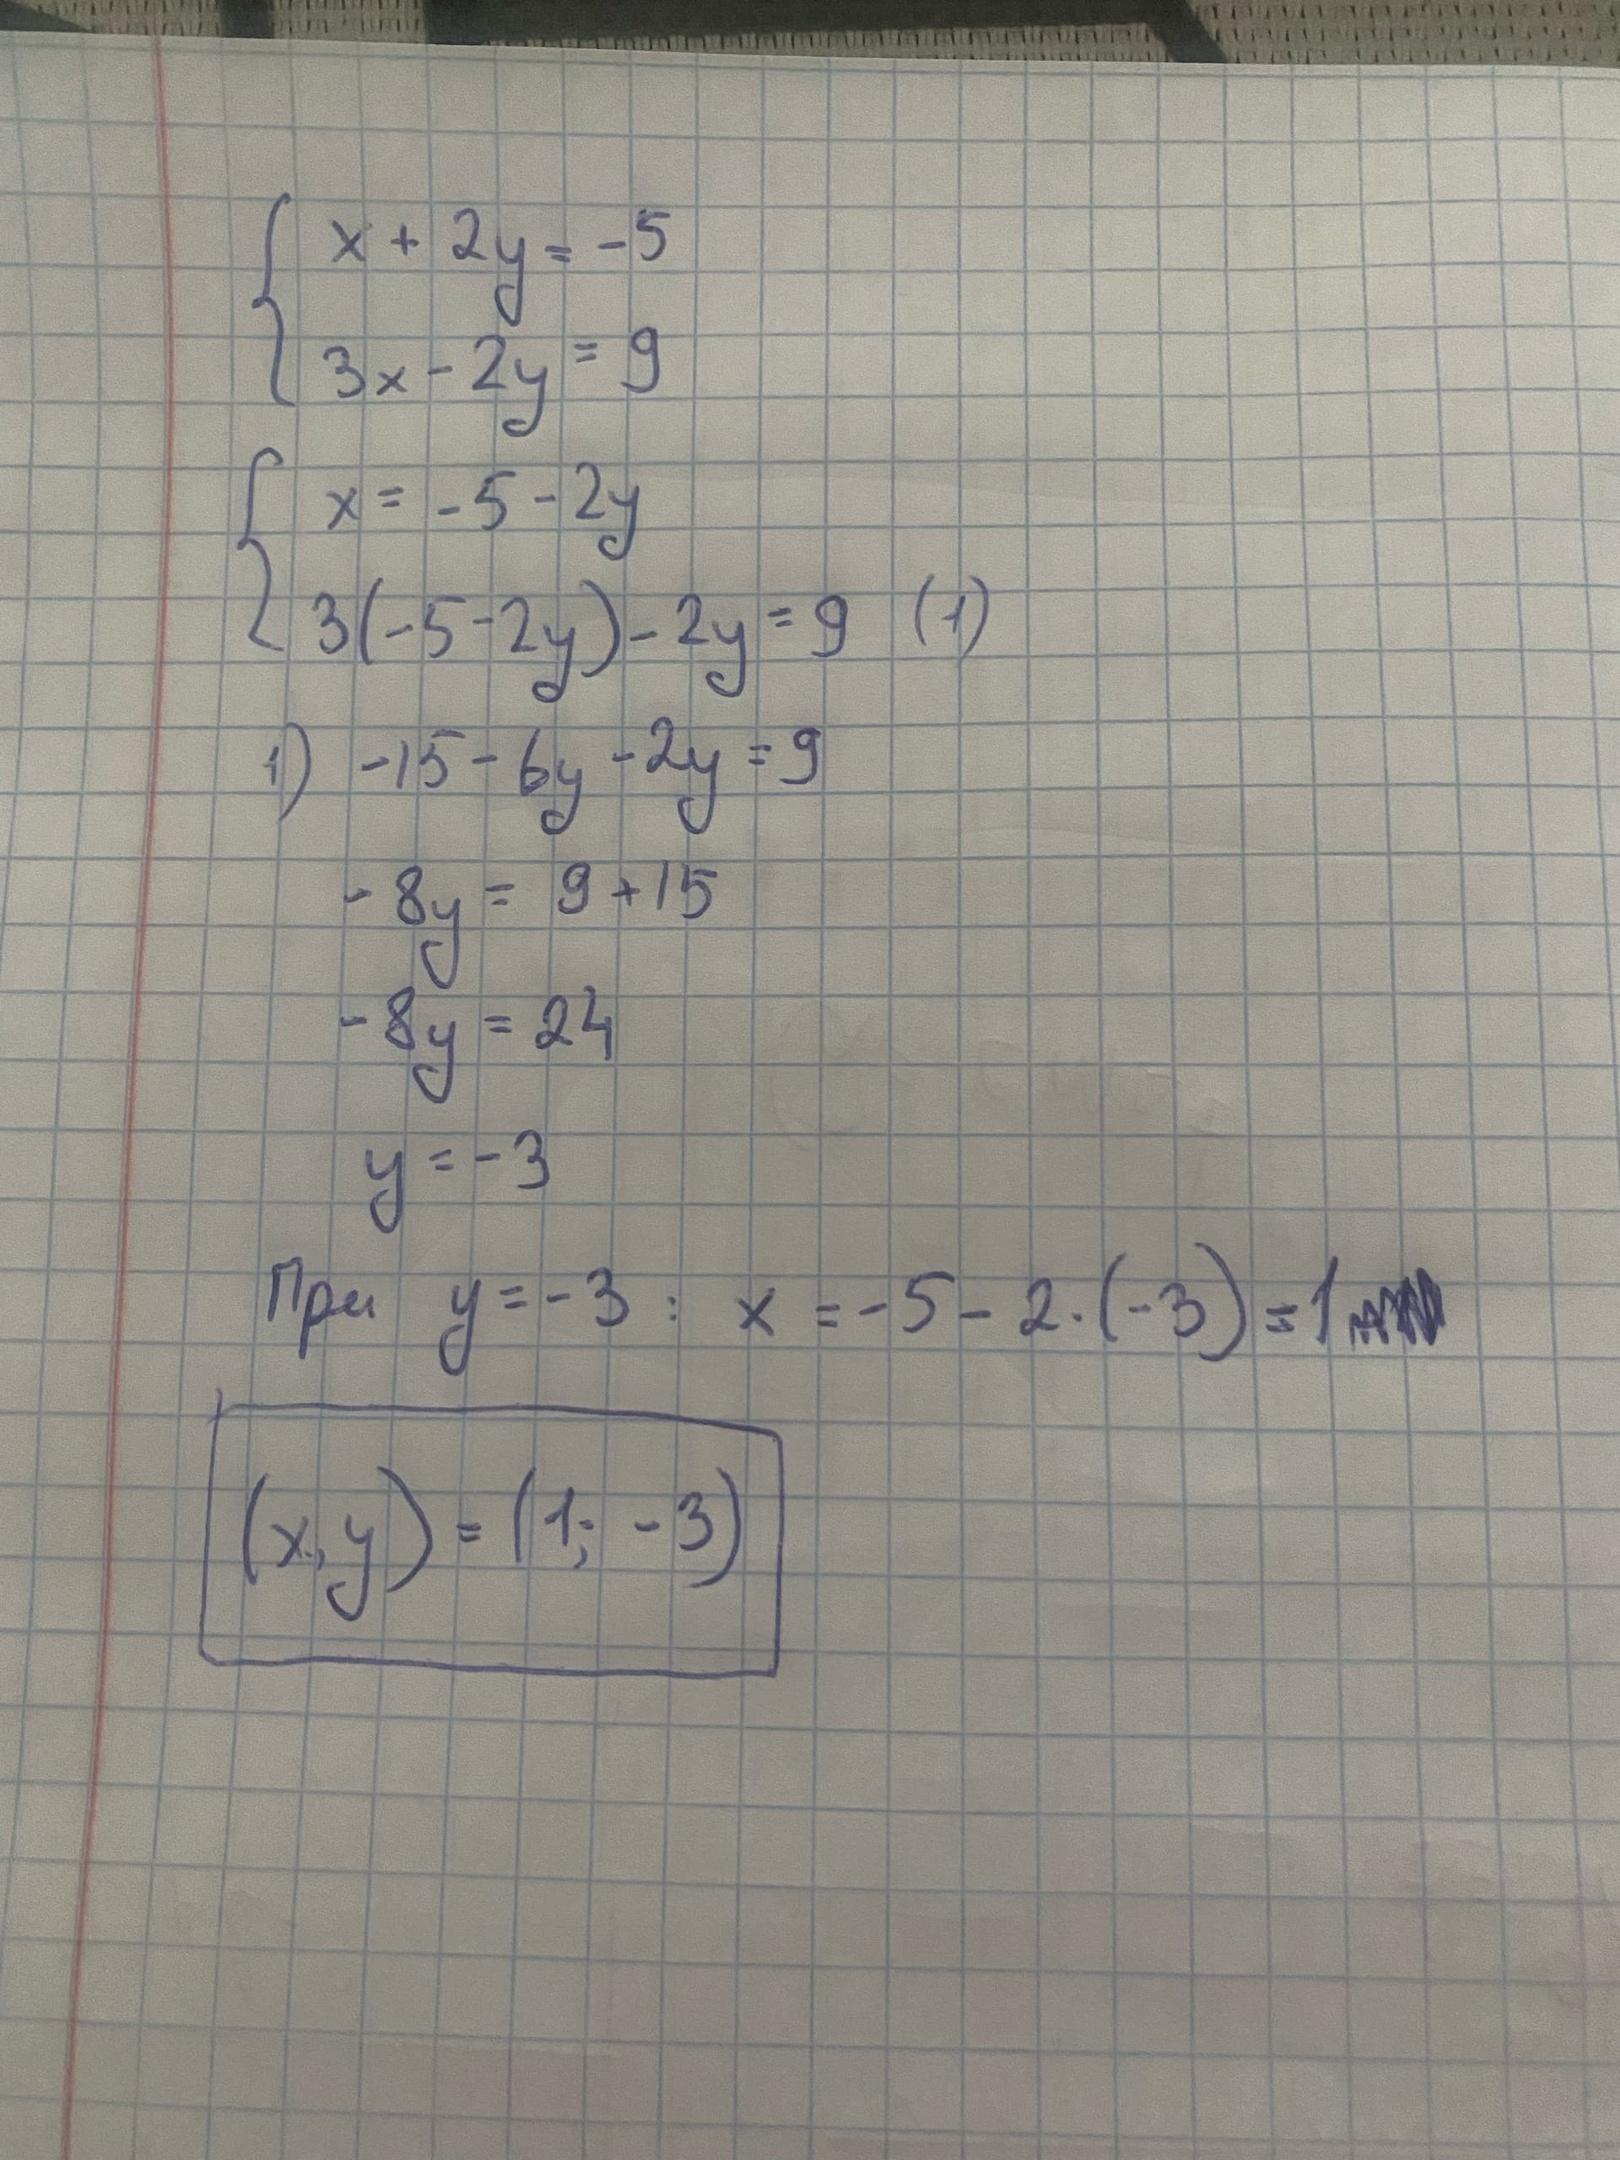 x + 2y = -5
3x - 2y = 9
x = -5 - 2y
3(-5 - 2y) - 2y = 9 (1)
1) -15 - 6y - 2y = 9
-8y = 9 + 15
-8y = 24
y = -3
При y = -3 : x = -5 - 2·(-3) = 1
(x, y) = (1; -3)